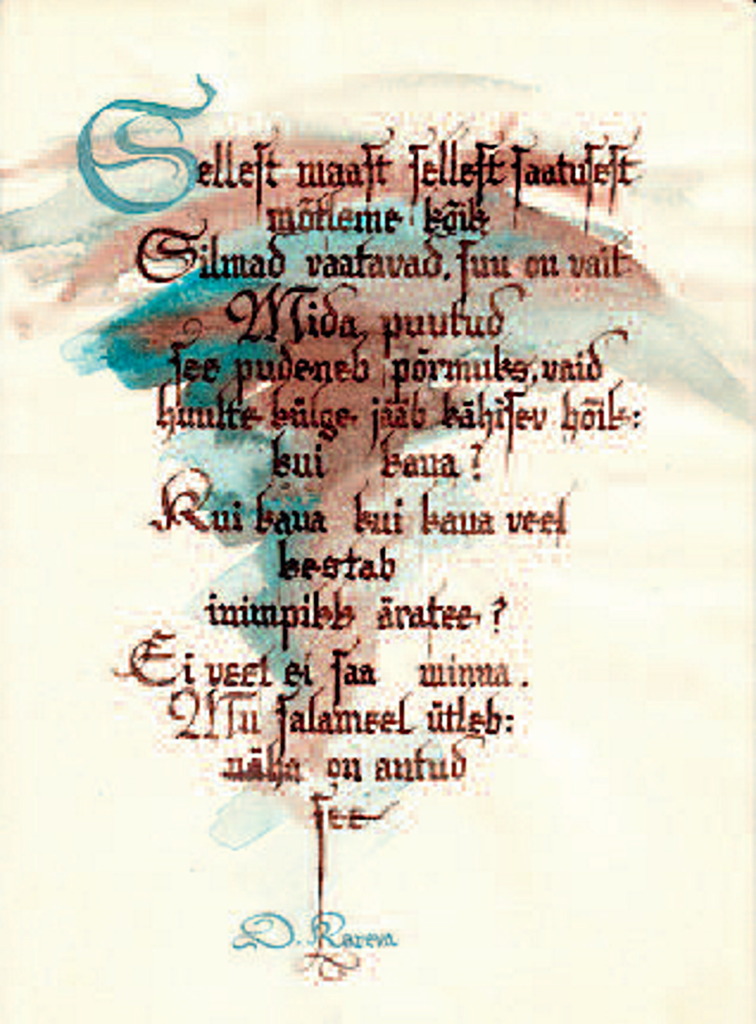 Sellest maast sellest saatusest
mõtleme kõik
Silmad vaatavad, suu on vait
Mida puutud
see pudeneb põrmuks, vaid
huulte külge jääb kähisev hõik:
kui kaua?
Kui kaua kui kaua veel
kestab
inimpikk äratee?
Ei veel ei saa minna.
Mu salameel ütleb:
näha on antud
see
D. Kareva